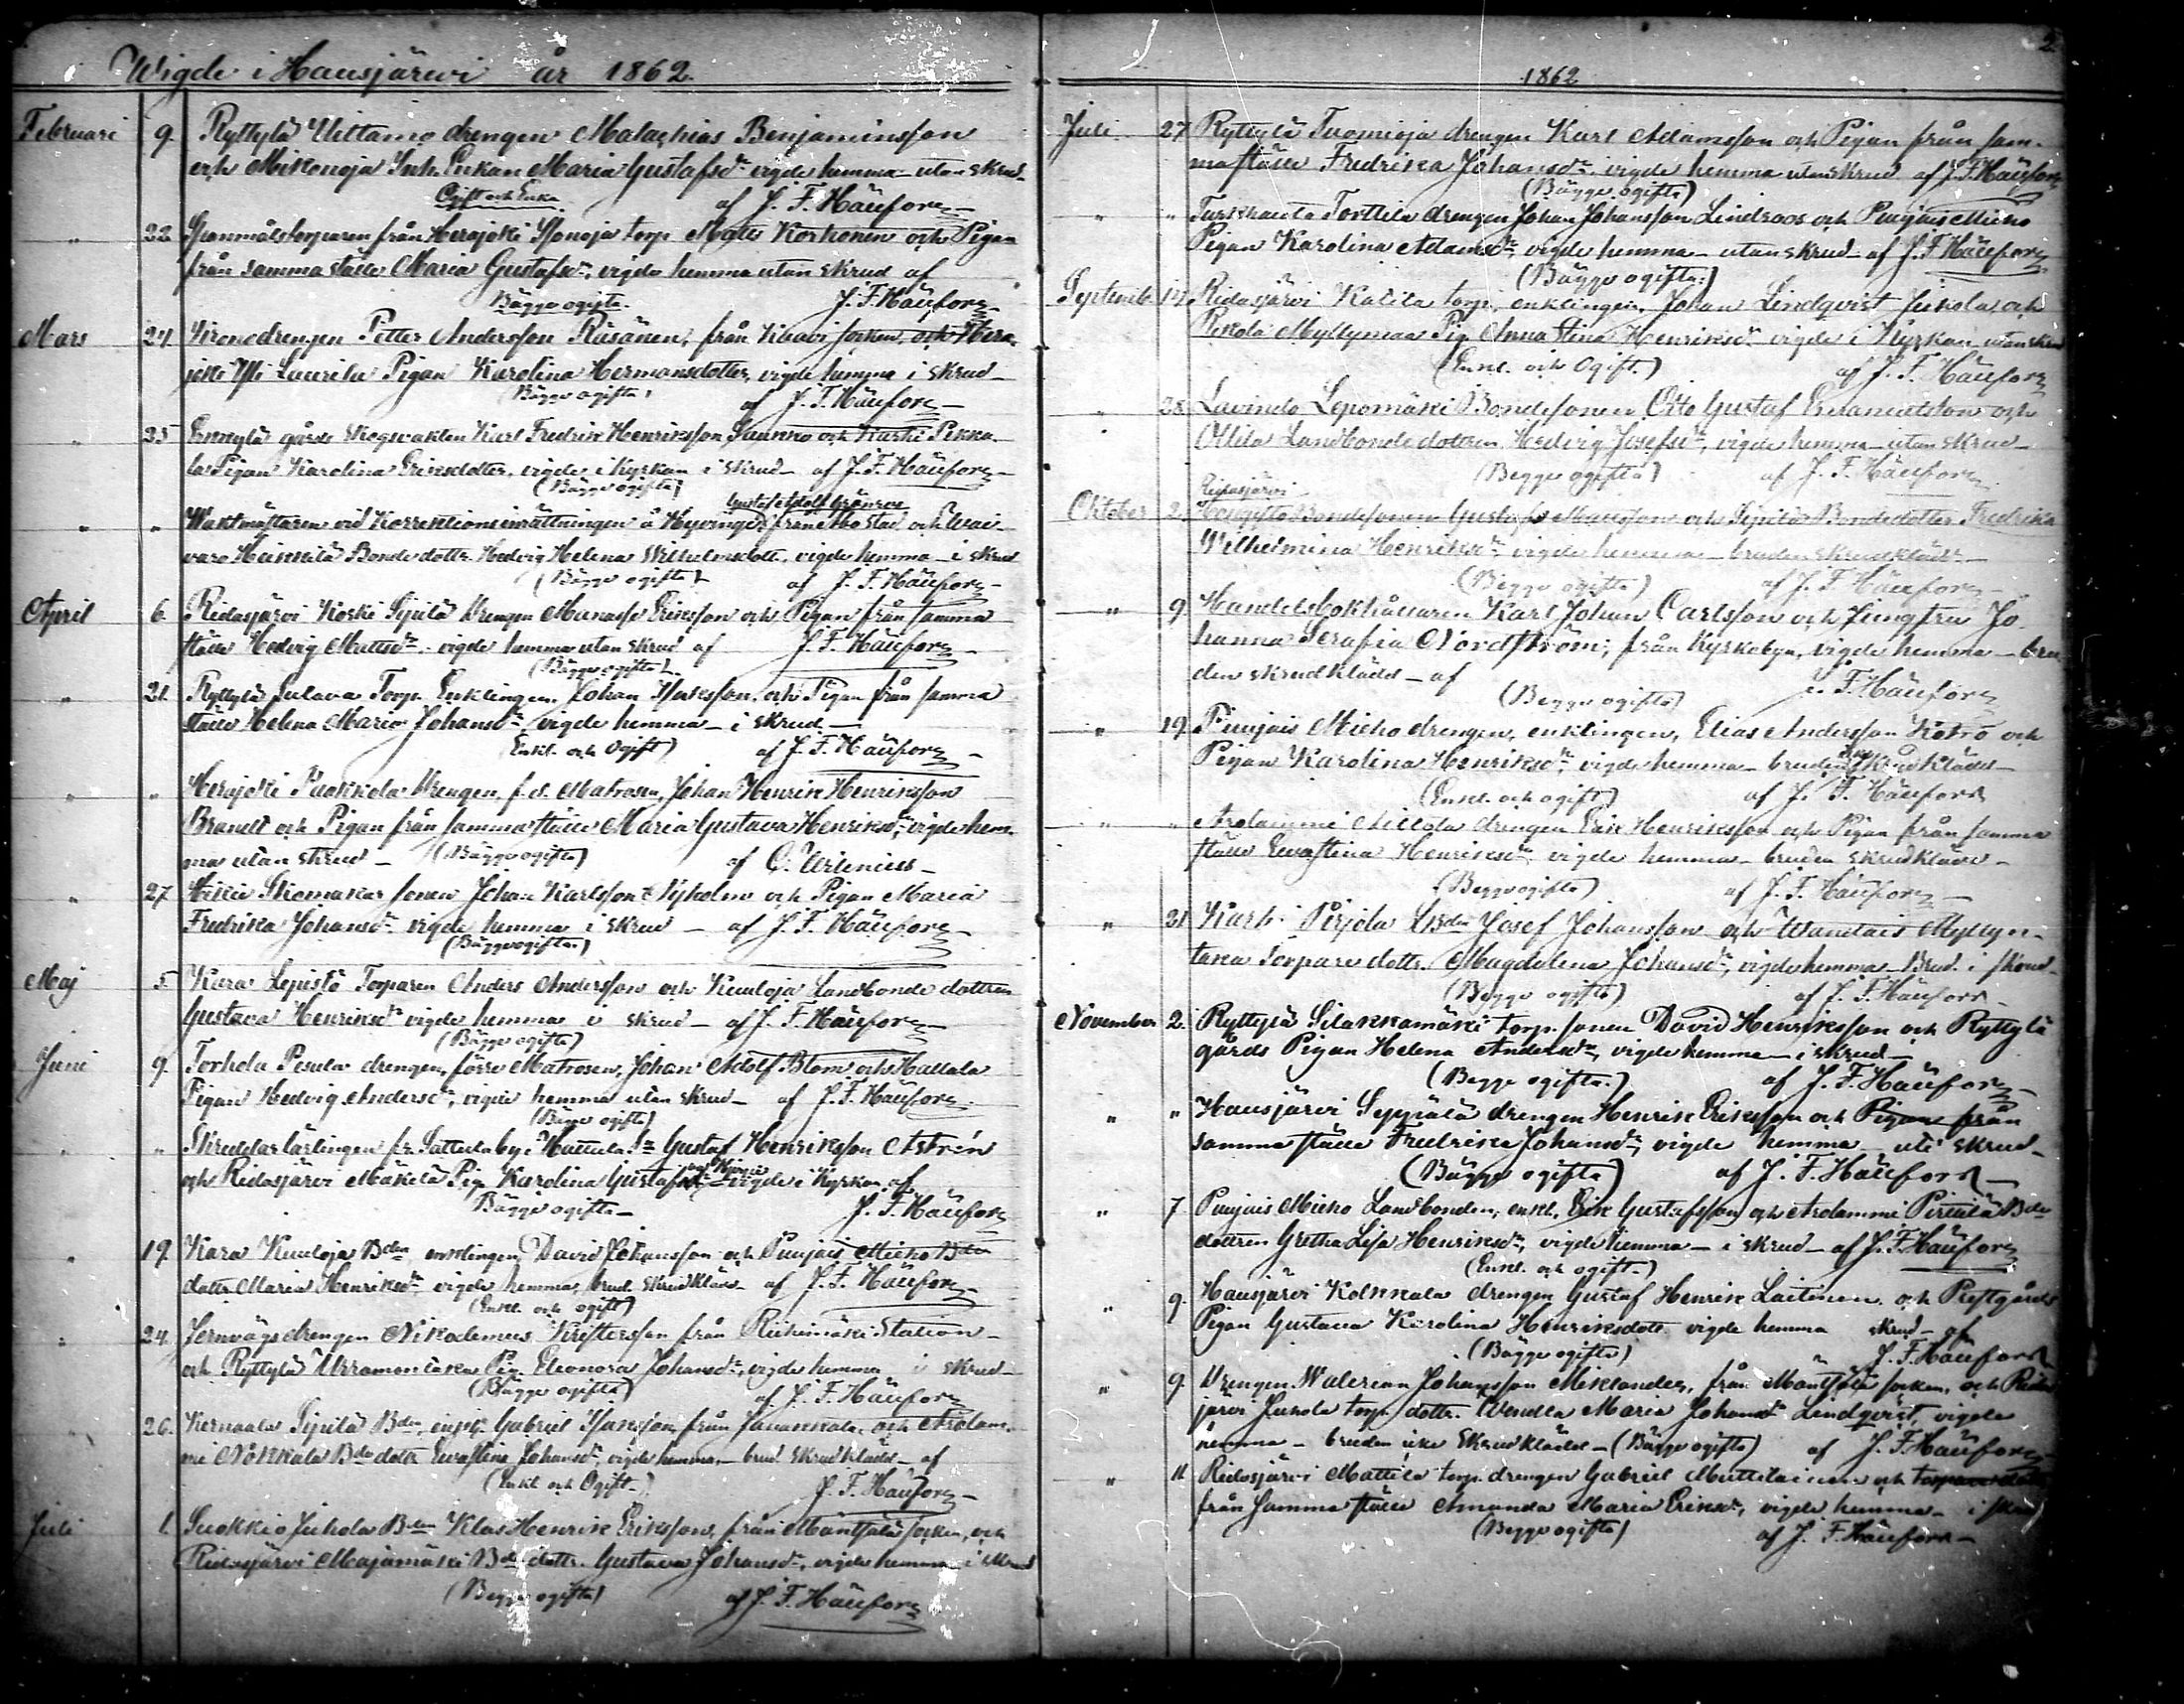 Wigde i Hausjärwi år 1862.
Februari 9. Ryttylä Uittamo drengen Malachias Benjaminsson
och Mikonoja Inh. Enkan Maria Gustafsdr vigde hemma utan skrud
Ogift och Enka af J. F. Häuforn
" 22. Spanmålstorparen från Herajoki Isonoja torp Matts Korhonen och Pigan
från samma ställe Maria Gustafsdr, vigde hemma utan skrud af
Bägge ogifta. J. F. Häuforn
Mars 24. Kronodrengen Petter Andersson Räsänen, från Kaavi socken och Hera-
joki Yli Laurila Pigan Karolina Hermansdotter, vigde hemma i skrud
(Bägge ogifta) af J. F. Häuforn
" 25 Erkylä gårds skogswakten Karl Fredrik Henriksson Suukko och Karhi Pekka-
la Pigan Karolina Eriksdotter, vigde i Kyrkan i skrud af J. F. Häuforn
(Bägge ogifta)
Gustaf Adolf Grönroos
" " Waktmästaren vid Korrektionsinrättningen å Hyvinge från Åbo stad och
Heikkilä Bonde dottr. Hedvig Helena Wilhelmsdott. vigde hemma i skrud
(Bägge ogifta) af J. F. Häuforn
April 6. Ridasjärvi Koski Sipilä Drengen Manasse Eriksson och Pigan från samma
ställe Hedvig Mattsdr. vigde hemma utan skrud af J. F. Häuforn
(Bägge ogifta)
" 21. Ryttylä Torp. Enklingen Johan Isaksson och Pigan från samma
ställe Helena Maria Johansdr, vigde hemma i skrud
(Enkl. och Ogift) af J. F. Häuforn
" " Herajoki Paakkola Drengen, f. d. Matrosen, Johan Henrik Henriksson
Brandt och Pigan från samma ställe Maria Gustava Henriksdr, vigde hem-
ma utan skrud (Bägge ogifta) af C.
" 27. Skomakar sonen Johan Karlsson Nyholm och Pigan Maria
Fredrika Johansdr vigde hemma i skrud af J. F. Häuforn
(Bägge ogifta)
Maj 5. Kara Lepistö Torparen Anders Andersson och Kuuloja Landbonde dottren
Gustava Henriksdr vigde hemma i skrud af J. F. Häuforn
(Bägge ogifta)
Juni 9. Torhola Pesula drengen, förre Matrosen, Johan Adolf Blom och Hallala
Pigan Hedvig Andersdr, vigde hemma utan skrud af J. F. Häuforn
(Bägge ogifta)
" " Skreddar lärlingen fr. by i Hattula Sn Gustaf Henriksson Astrén
och Ridasjärvi Mäkelä Pig. Karolina Gustafsdr vigde i Kyrkan af
Bägge ogifta J. F. Häuforn
" 19. Kara Kuuloja Bden enklingen David Johansson och Puujais Micko Bde
dottr. Maria Henriksdr vigde hemma, brud. skrudklädd af J. F. Häuforn
(Enkl. och ogift)
" 24. Jernvägsdrengen Nikodemus Kristersson från Riihimäki Station
och Ryttylä Pig. Eleonora Johansdr, vigde hemma i skrud
(Bägge ogifta) af J. F. Häuforn
26. Kernaala Sipilä Bden, enkl. Gabriel Isaksson från Janakkala och Arolam-
mi Nokkala Bde dottr Evastina Johansdr, vigde hemma brud skrudklädd af
(Enkl och Ogift) J. F. Häuforn
Juli 1. Suokkio Juhola Bden Klas Henrik Eriksson, från Mäntsälä socken, och
Ridasjärvi Majamäki Bde dottr. Gustava Johansdr, vigde hemma i skrud
(Begge ogifta) af J. F. Häuforn
2.
1862
Juli 27. Ryttylä Tuomioja drengen Karl Adamsson och Pigan från sam-
ma ställe Fredrika Johansdr vigde hemma utan skrud af J. F. Häuforn
(Bägge ogifta)
" " Turkhauta Torttila drengen Johan Johansson Lindroos och Puujais Micko
Pigan Karolina Adamsdr, vigde hemma utan skrud af J. F. Häuforn
(Bägge ogifta)
Septemb. 14. Ridasjärvi Katila torp. enklingen, Johan Lindqvist Juhola och
Myllymaa Pig. Anna Stina Henriksdr vigde i Kyrkan utan skrud
(Enkl. och Ogift.) af J. F. Häuforn
" 28. Lavinto Lepomäki Bondesonen Otto Gustaf Emanuelsson och
Ollila Landbonde dottren Hedvig Josefsdr, vigde hemma utan skrud
(Begge ogifta) af J. F. Häuforn
Ridasjärvi
Oktober 2. Bondesonen Gustaf Mattsson och Sipilä Bondedotter Fredrika
Wilhelmina Henriksdr vigde hemma bruden skrudklädd
(Begge ogifta) af J. F. Häuforn
" 9. Handelsbokhållaren Karl Johan Carlsson och Jungfru Jo-
hanna Serafia Nordström, från Kyrkobyn, vigde hemma bru-
den skrudklädd af (Begge ogifta) J. F. Häuforn
" 19. Puujais Micko drengen, enklingen, Elias Andersson Kotro och
Pigan Karolina Henriksdr, vigde hemma bruden skrudklädd
(Enkl. och ogift) af J. F. Häuforn
" " Arolammi drengen Erik Henriksson och Pigan från samma
ställe Evastina Henriksdr vigde hemma bruden skrudklädd
(Begge ogifta) af J. F. Häuforn
" 21 Karhi Pirjola Bden Josef Johansson och Wantais Myllyn-
taka Torpare dottr. Magdalena Johansdr, vigde hemma Brud. i skrud
(Begge ogifta) af J. F. Häuforn
November 2. Ryttylä Silakkamäki torp. sonen David Henriksson och Ryttylä
gårds Pigan Helena Andersdr, vigde hemma i skrud
(Begge ogifta.) af J. F. Häuforn
" " Hausjärvi Seppälä drengen Henrik Eriksson och Pigan från
samma ställe Fredrika Johansdr vigde hemma uti skrud
(Bägge ogifta) af J. F. Häuforn
" 7 Puujais Micko Landbonden, enkl. Erik Gustafsson och Arolammi Pirttilä Bde
dottren Gretha Lisa Henriksdr, vigde hemma i skrud af J. F. Häuforn
(Enkl. och ogift.)
" 9. Hausjärvi Kolkkala drengen Gustaf Henrik Laitinen och Prestgårds
Pigan Gustava Karolina Henriksdott. vigde hemma skrud af
(Bägge ogifta) J. F. Häuforn
" 9. Drengen Walerian Johansson Miklander, från Mäntsälä socken, och Rida-
järvi Juhola torp. dottr. Wendla Maria Johansdr Lindqvist, vigde
hemma bruden icke skrudklädd (Bägge ogifta) af J. F. Häuforn
" 11. Ridasjärvi Mattila torp. drengen Gabriel Muttilainen och
från samma ställe Amanda Maria Eriksdr, vigde hemma i skrud
(Begge ogifta) af J. F. Häuforn